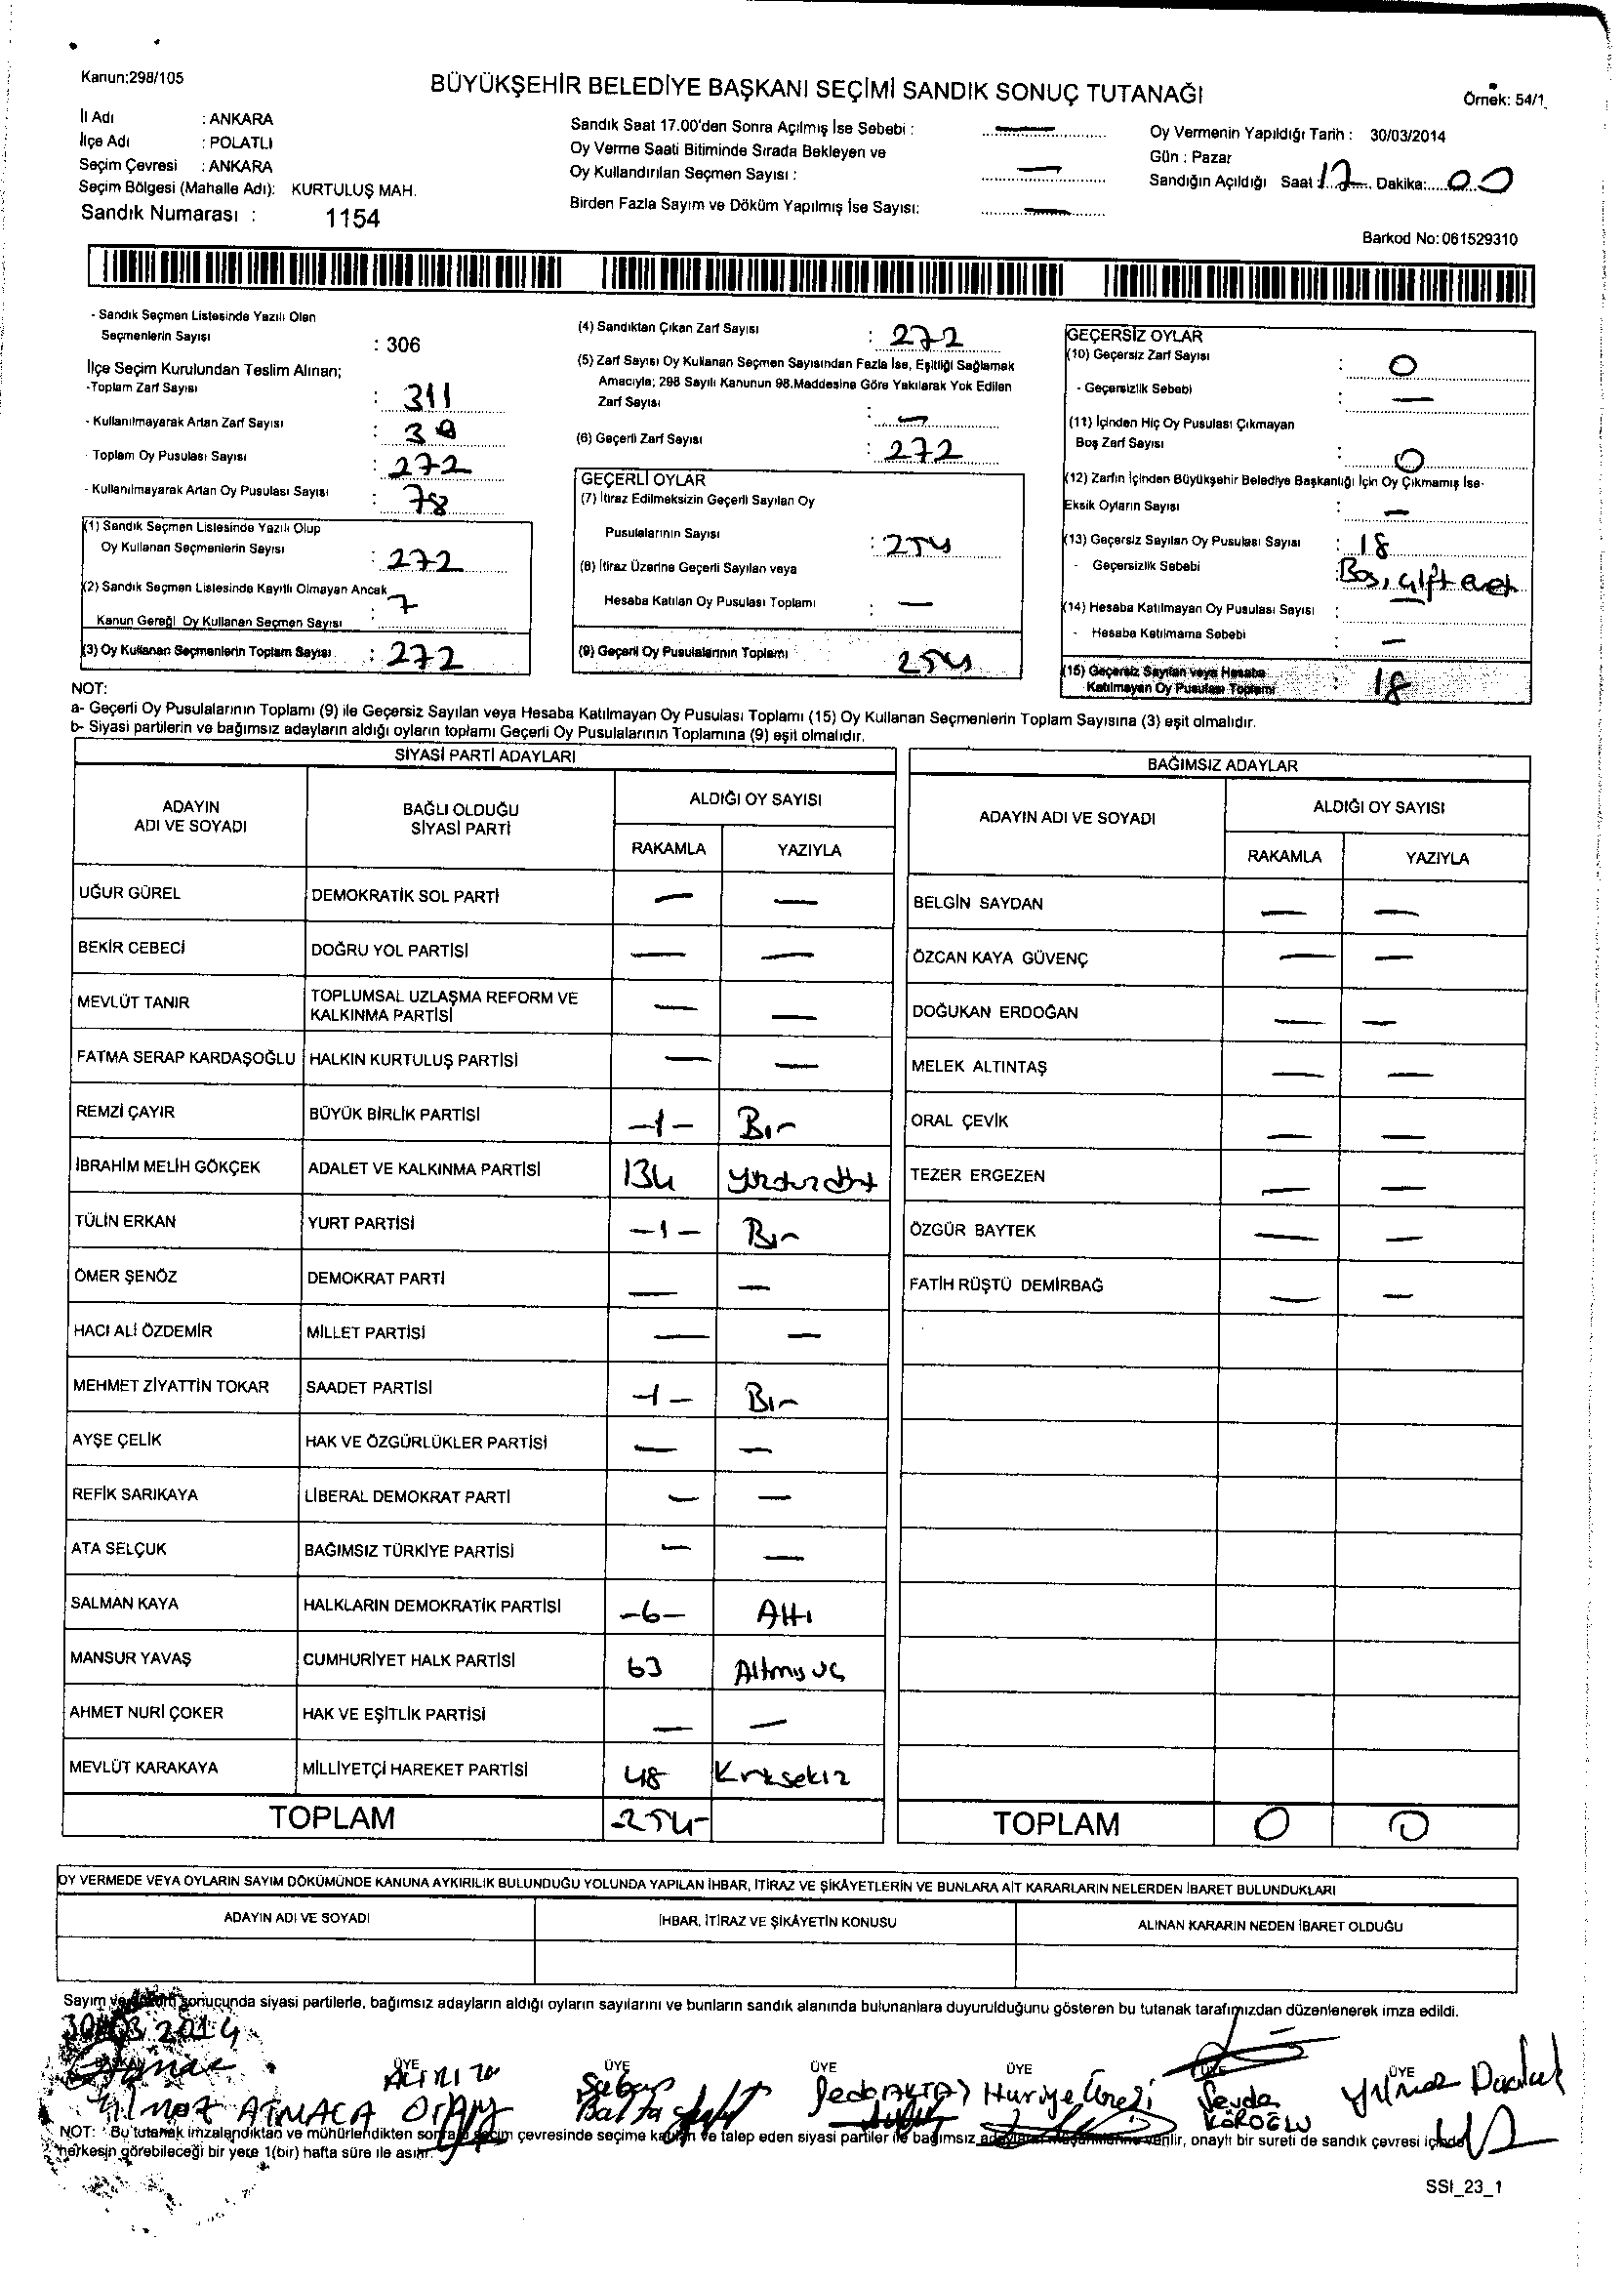 Kanun:298/105
BÜYÜKŞEHİR BELEDİYE BAŞKANI SEÇİMİ SANDIK SONUÇ TUTANAĞI
Örnek: 54/1
İl Adı : ANKARA
İlçe Adı : POLATLI
Seçim Çevresi : ANKARA
Seçim Bölgesi (Mahalle Adı): KURTULUŞ MAH.
Sandık Numarası : 1154
Sandık Saat 17.00'den Sonra Açılmış İse Sebebi : —
Oy Verme Saati Bitiminde Sırada Bekleyen ve
Oy Kullandırılan Seçmen Sayısı : —
Birden Fazla Sayım ve Döküm Yapılmış İse Sayısı: —
Oy Vermenin Yapıldığı Tarih : 30/03/2014
Gün : Pazar
Sandığın Açıldığı Saat : 17 Dakika: 00
Barkod No: 061529310
- Sandık Seçmen Listesinde Yazılı Olan
Seçmenlerin Sayısı : 306
İlçe Seçim Kurulundan Teslim Alınan;
-Toplam Zarf Sayısı : 311
- Kullanılmayarak Artan Zarf Sayısı :
- Toplam Oy Pusulası Sayısı : 272
- Kullanılmayarak Artan Oy Pusulası Sayısı : 78
(1) Sandık Seçmen Listesinde Yazılı Olup
Oy Kullanan Seçmenlerin Sayısı : 272
(2) Sandık Seçmen Listesinde Kayıtlı Olmayan Ancak
Kanun Gereği Oy Kullanan Seçmen Sayısı : 7
(3) Oy Kullanan Seçmenlerin Toplam Sayısı : 272
(4) Sandıktan Çıkan Zarf Sayısı : 272
(5) Zarf Sayısı Oy Kullanan Seçmen Sayısından Fazla İse, Eşitliği Sağlamak
Amacıyla; 298 Sayılı Kanunun 98.Maddesine Göre Yakılarak Yok Edilen
Zarf Sayısı : —
(6) Geçerli Zarf Sayısı : 272
GEÇERLİ OYLAR
(7) İtiraz Edilmeksizin Geçerli Sayılan Oy
Pusulalarının Sayısı : 254
(8) İtiraz Üzerine Geçerli Sayılan veya
Hesaba Katılan Oy Pusulası Toplamı : —
(9) Geçerli Oy Pusulalarının Toplamı : 254
GEÇERSİZ OYLAR
(10) Geçersiz Zarf Sayısı : 0
- Geçersizlik Sebebi : —
(11) İçinden Hiç Oy Pusulası Çıkmayan
Boş Zarf Sayısı : 0
(12) Zarfın İçinden Büyükşehir Belediye Başkanlığı İçin Oy Çıkmamış İse-
Eksik Oyların Sayısı : —
(13) Geçersiz Sayılan Oy Pusulası Sayısı : 18
- Geçersizlik Sebebi : Boş, çift evet
(14) Hesaba Katılmayan Oy Pusulası Sayısı :
- Hesaba Katılmama Sebebi : —
(15) Geçersiz Sayılan veya Hesaba
Katılmayan Oy Pusulası Toplamı : 18
NOT:
a- Geçerli Oy Pusulalarının Toplamı (9) ile Geçersiz Sayılan veya Hesaba Katılmayan Oy Pusulası Toplamı (15) Oy Kullanan Seçmenlerin Toplam Sayısına (3) eşit olmalıdır.
b- Siyasi partilerin ve bağımsız adayların aldığı oyların toplamı Geçerli Oy Pusulalarının Toplamına (9) eşit olmalıdır.
SİYASİ PARTİ ADAYLARI
ADAYIN ADI VE SOYADI BAĞLI OLDUĞU SİYASİ PARTİ ALDIĞI OY SAYISI
RAKAMLA YAZIYLA
UĞUR GÜREL DEMOKRATİK SOL PARTİ — —
BEKİR CEBECİ DOĞRU YOL PARTİSİ — —
MEVLÜT TANIR TOPLUMSAL UZLAŞMA REFORM VE KALKINMA PARTİSİ — —
FATMA SERAP KARDAŞOĞLU HALKIN KURTULUŞ PARTİSİ — —
REMZİ ÇAYIR BÜYÜK BİRLİK PARTİSİ -1- Bir
İBRAHİM MELİH GÖKÇEK ADALET VE KALKINMA PARTİSİ 134
TÜLİN ERKAN YURT PARTİSİ -1- Bir
ÖMER ŞENÖZ DEMOKRAT PARTİ — —
HACI ALİ ÖZDEMİR MİLLET PARTİSİ — —
MEHMET ZİYATTİN TOKAR SAADET PARTİSİ -1- Bir
AYŞE ÇELİK HAK VE ÖZGÜRLÜKLER PARTİSİ — —
REFİK SARIKAYA LİBERAL DEMOKRAT PARTİ — —
ATA SELÇUK BAĞIMSIZ TÜRKİYE PARTİSİ — —
SALMAN KAYA HALKLARIN DEMOKRATİK PARTİSİ -6- Altı
MANSUR YAVAŞ CUMHURİYET HALK PARTİSİ 63 Altmış üç
AHMET NURİ ÇOKER HAK VE EŞİTLİK PARTİSİ — —
MEVLÜT KARAKAYA MİLLİYETÇİ HAREKET PARTİSİ 48 Kırksekiz
TOPLAM -254-
BAĞIMSIZ ADAYLAR
ADAYIN ADI VE SOYADI ALDIĞI OY SAYISI
RAKAMLA YAZIYLA
BELGİN SAYDAN — —
ÖZCAN KAYA GÜVENÇ — —
DOĞUKAN ERDOĞAN — —
MELEK ALTINTAŞ — —
ORAL ÇEVİK — —
TEZER ERGEZEN — —
ÖZGÜR BAYTEK — —
FATİH RÜŞTÜ DEMİRBAĞ — —
TOPLAM 0 0
OY VERMEDE VEYA OYLARIN SAYIM DÖKÜMÜNDE KANUNA AYKIRILIK BULUNDUĞU YOLUNDA YAPILAN İHBAR, İTİRAZ VE ŞİKÂYETLERİN VE BUNLARA AİT KARARLARIN NELERDEN İBARET BULUNDUKLARI
ADAYIN ADI VE SOYADI İHBAR, İTİRAZ VE ŞİKÂYETİN KONUSU ALINAN KARARIN NEDEN İBARET OLDUĞU
Sayım ve döküm sonucunda siyasi partilerle, bağımsız adayların aldığı oyların sayılarını ve bunların sandık alanında bulunanlara duyurulduğunu gösteren bu tutanak tarafımızdan düzenlenerek imza edildi.
30.03.2014
ÜYE ÜYE ÜYE ÜYE ÜYE ÜYE
Yılmaz ATMACA
Huriye
Sevda KÖROĞLU
Yılmaz
NOT: Bu tutanak imzalandıktan ve mühürlendikten sonra seçim çevresinde seçime katılan ve talep eden siyasi partiler ile bağımsız verilir, onaylı bir sureti de sandık çevresi içinde
herkesin görebileceği bir yere 1(bir) hafta süre ile asılır.
SSI_23_1